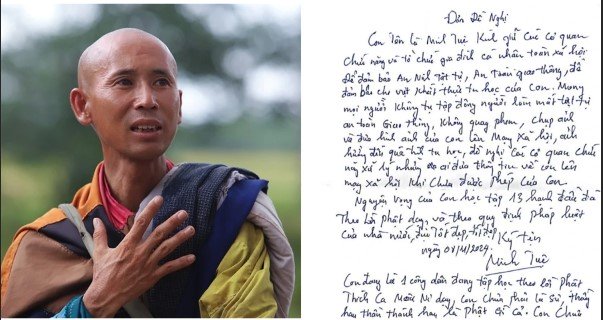 Đơn Đề Nghị
Con Tên là Minh Tuệ Kính gửi Các cơ quan
chức năng và tổ chức gia đình cá nhân toàn xã hội
Để đảm bảo An Ninh trật tự, An toàn giao thông, để
đảm bảo cho việc khất thực tu học của Con. Mong
mọi người Không tụ tập đông người làm mất trật tự
an toàn Giao thông, không quay phim, chụp ảnh
và đưa hình ảnh của con lên Mạng Xã hội, ảnh
hưởng đến quá trình tu học, đề nghị Các cơ quan chức
năng xử lý những ai đưa thông tin về con lên
mạng xã hội khi Chưa được phép Của Con
Nguyện Vọng Của Con học tập 13 hạnh đầu đà
Theo lời phật dạy, và theo quy định Pháp luật
Của nhà nước, đời tốt đẹp, đạo đẹp
Ký Tên
ngày 08/11/2024
Minh Tuệ
Con đang là 1 công dân đang tập học theo lời Phật
Thích Ca Mâu Ni dạy, con chưa phải là sư, thầy
hay thần thánh hay là Phật gì cả. Con Chúc